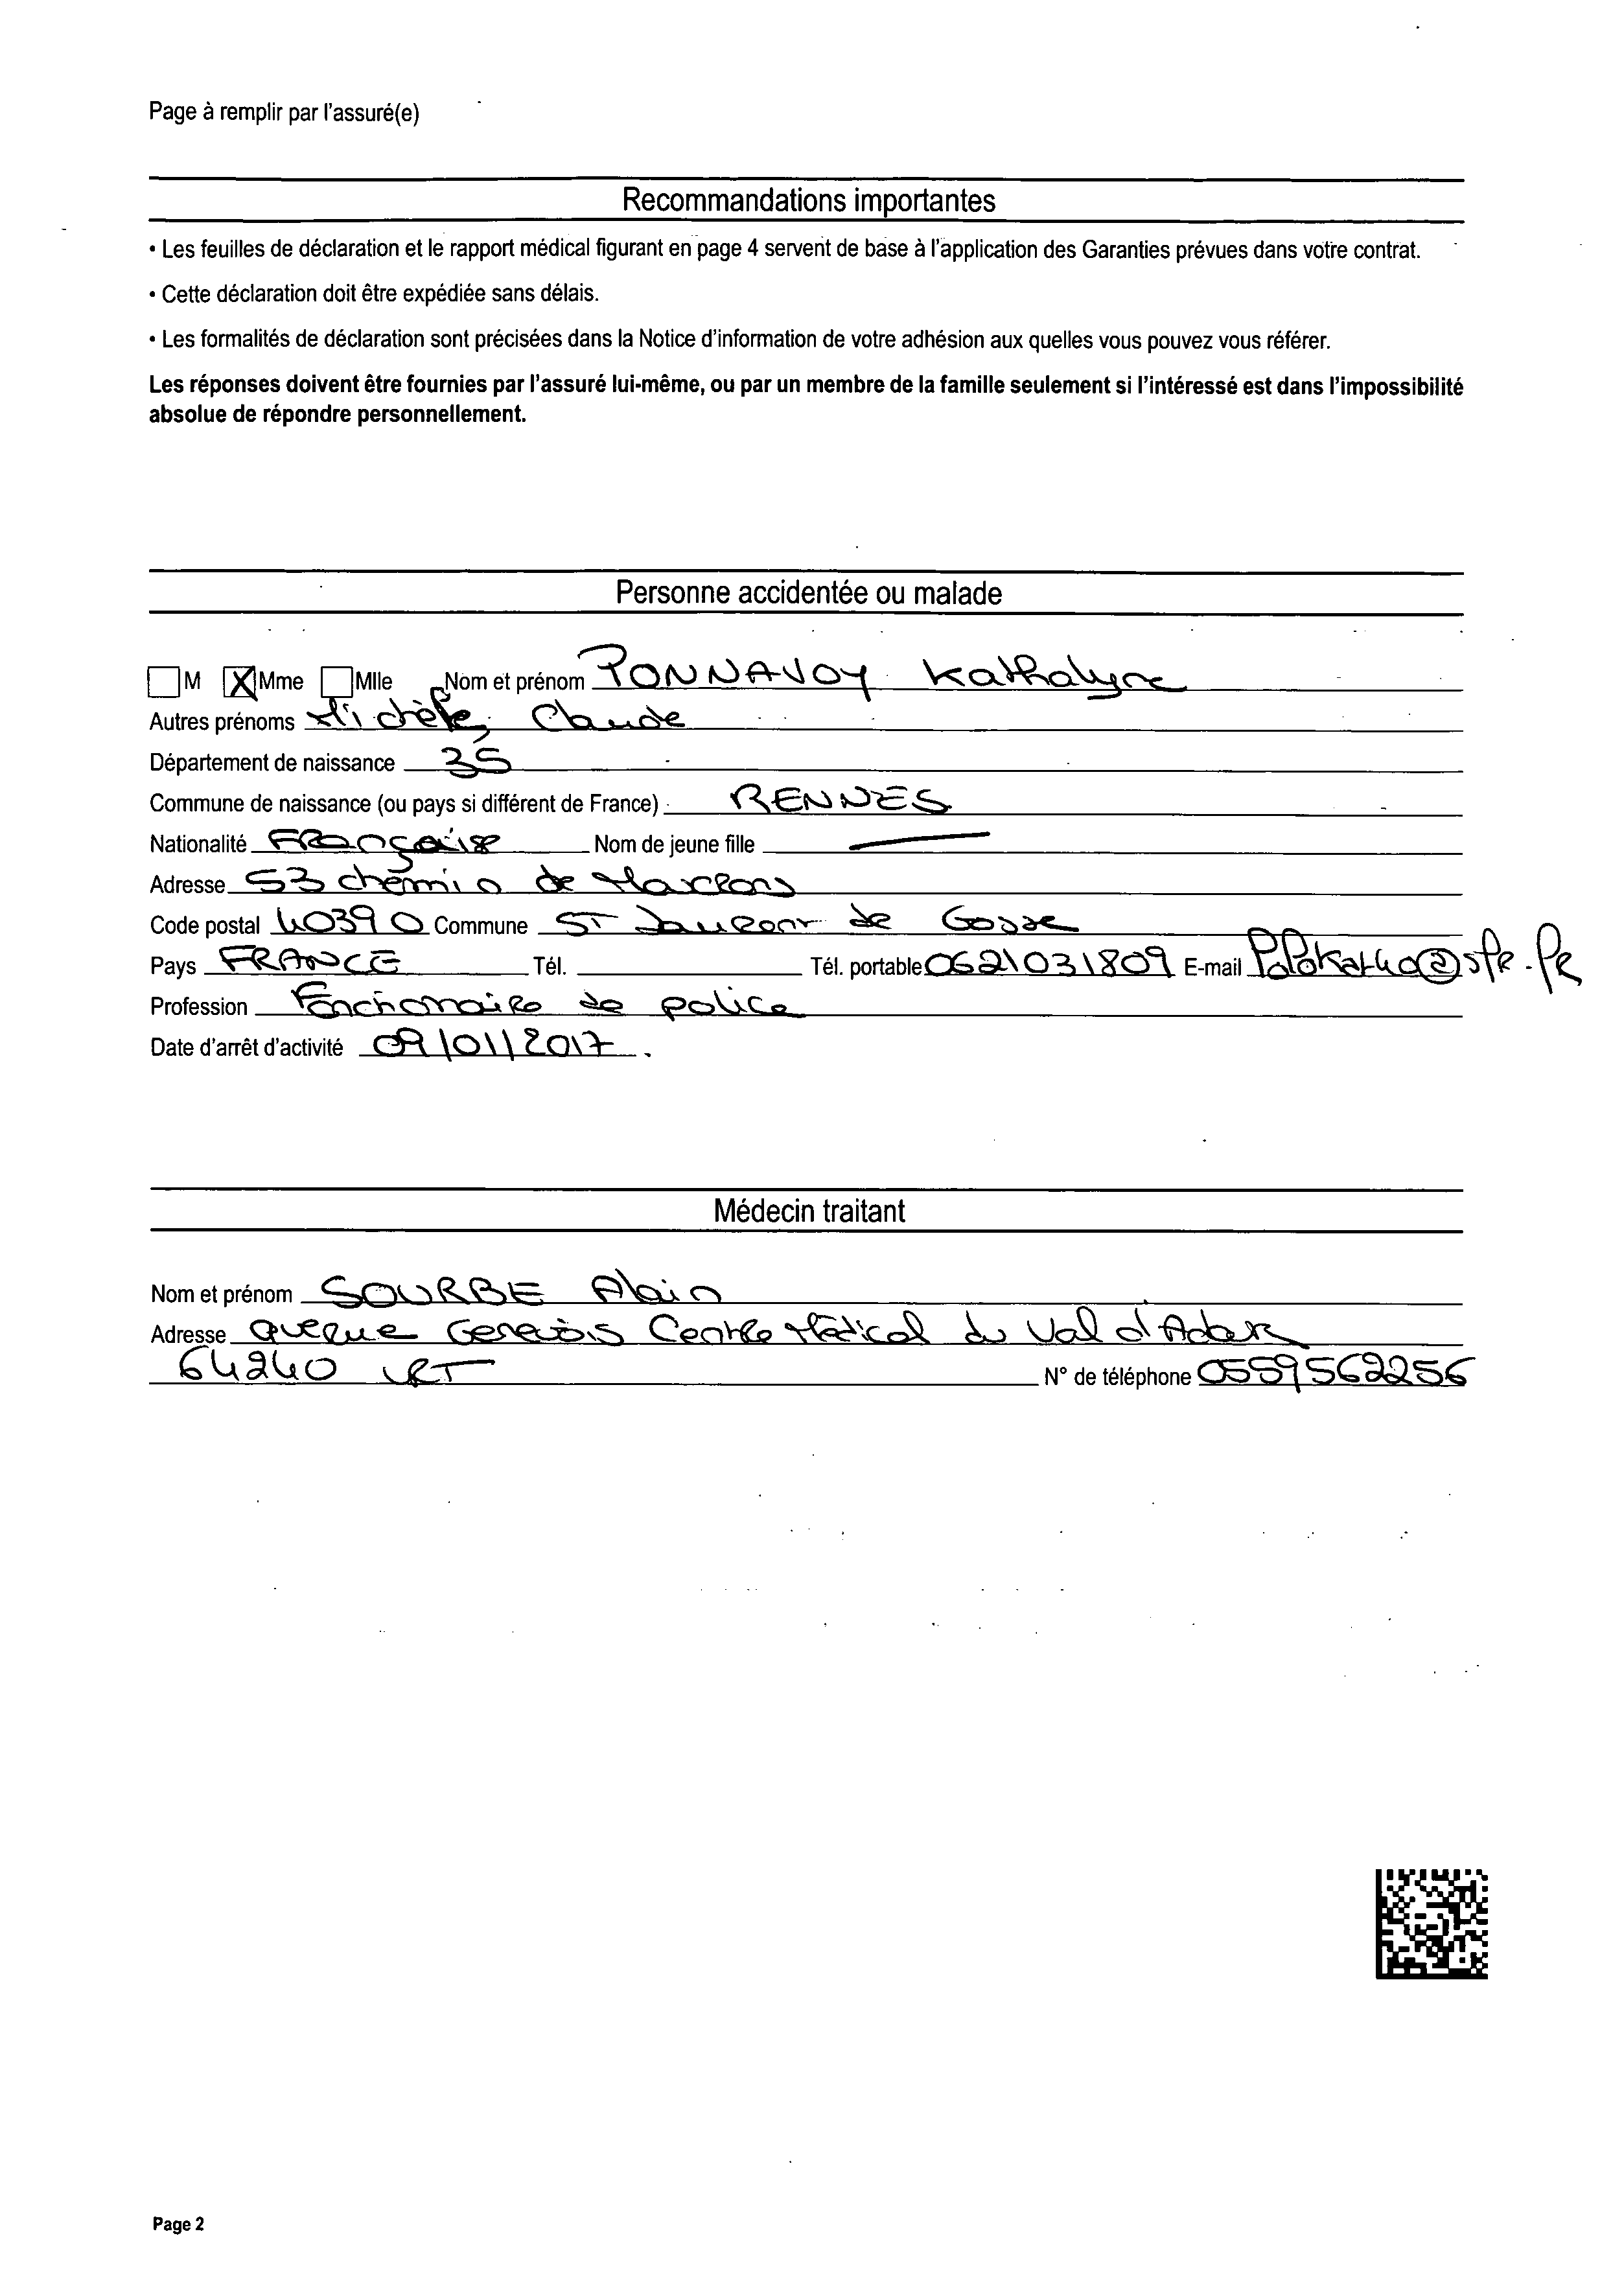 Page à remplir par l'assuré(e)
Recommandations importantes
• Les feuilles de déclaration et le rapport médical figurant en page 4 servent de base à l'application des Garanties prévues dans votre contrat.
• Cette déclaration doit être expédiée sans délais.
• Les formalités de déclaration sont précisées dans la Notice d'information de votre adhésion aux quelles vous pouvez vous référer.
Les réponses doivent être fournies par l'assuré lui-même, ou par un membre de la famille seulement si l'intéressé est dans l'impossibilité
absolue de répondre personnellement.
Personne accidentée ou malade
M X Mme Mlle Nom et prénom PONNAVOY Kathalyne
Autres prénoms Michèle, Claude
Département de naissance 35
Commune de naissance (ou pays si différent de France) RENNES
Nationalité Française Nom de jeune fille
Adresse 53 chemin de
Code postal 40390 Commune St Laurent de Gosse
Pays FRANCE Tél. Tél. portable 0621031809 E-mail
Profession Fonctionnaire de police
Date d'arrêt d'activité 09/01/2017
Médecin traitant
Nom et prénom SOURBE Alain
Adresse Centre Médical du Val d'Adour
64240 URT N° de téléphone 0559562256
Page 2